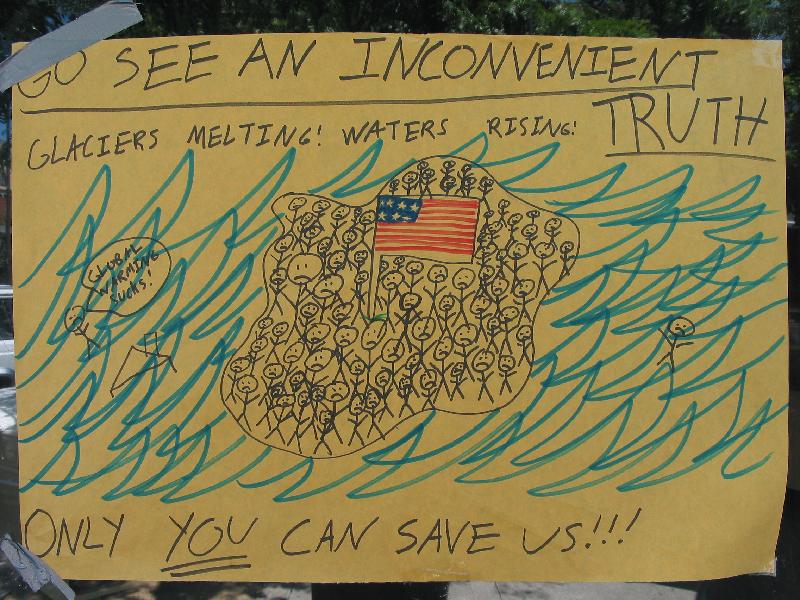 GO SEE AN INCONVENIENT
TRUTH
GLACIERS MELTING! WATERS RISING!
GLOBAL
WARMING
SUCKS!
ONLY YOU CAN SAVE US!!!